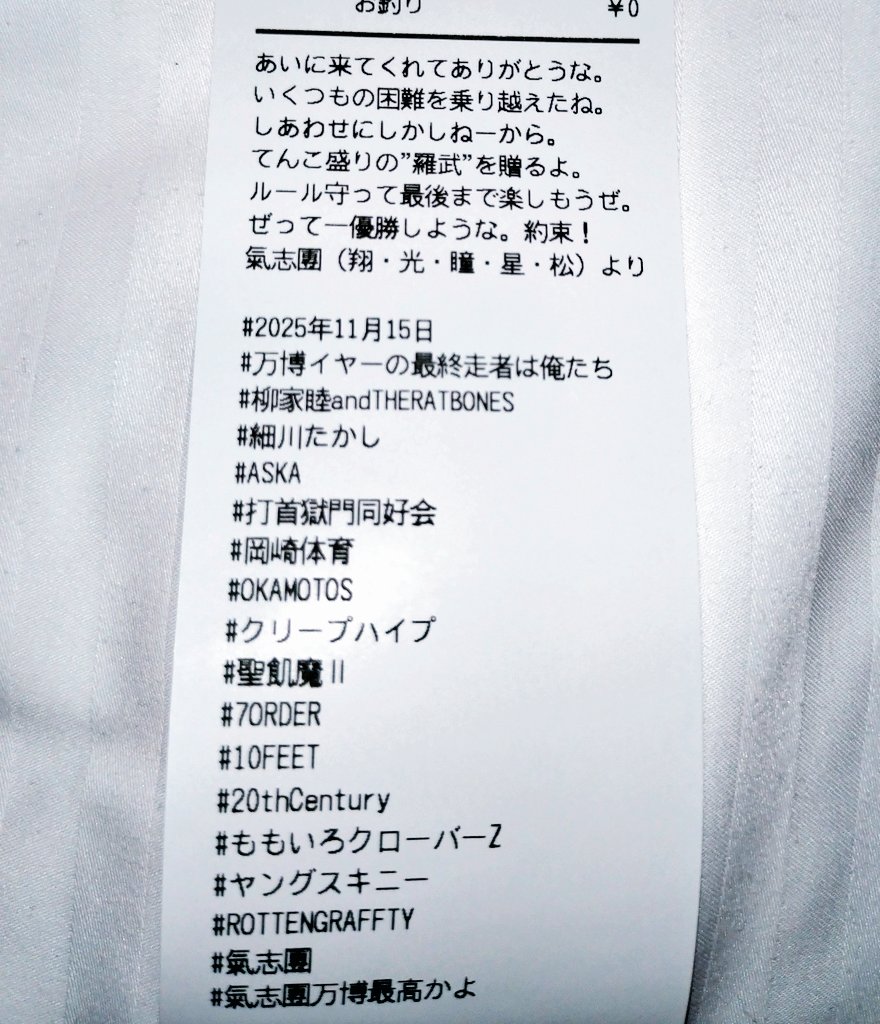 お釣り ¥0
あいに来てくれてありがとうな。
いくつもの困難を乗り越えたね。
しあわせにしかしねーから。
てんこ盛りの”羅武”を贈るよ。
ルール守って最後まで楽しもうぜ。
ぜって一優勝しような。約束！
氣志團（翔・光・瞳・星・松）より
#2025年11月15日
#万博イヤーの最終走者は俺たち
#柳家睦andTHERATBONES
#細川たかし
#ASKA
#打首獄門同好会
#岡崎体育
#OKAMOTOS
#クリープハイプ
#聖飢魔Ⅱ
#7ORDER
#10FEET
#20thCentury
#ももいろクローバーZ
#ヤングスキニー
#ROTTENGRAFFTY
#氣志團
#氣志團万博最高かよ